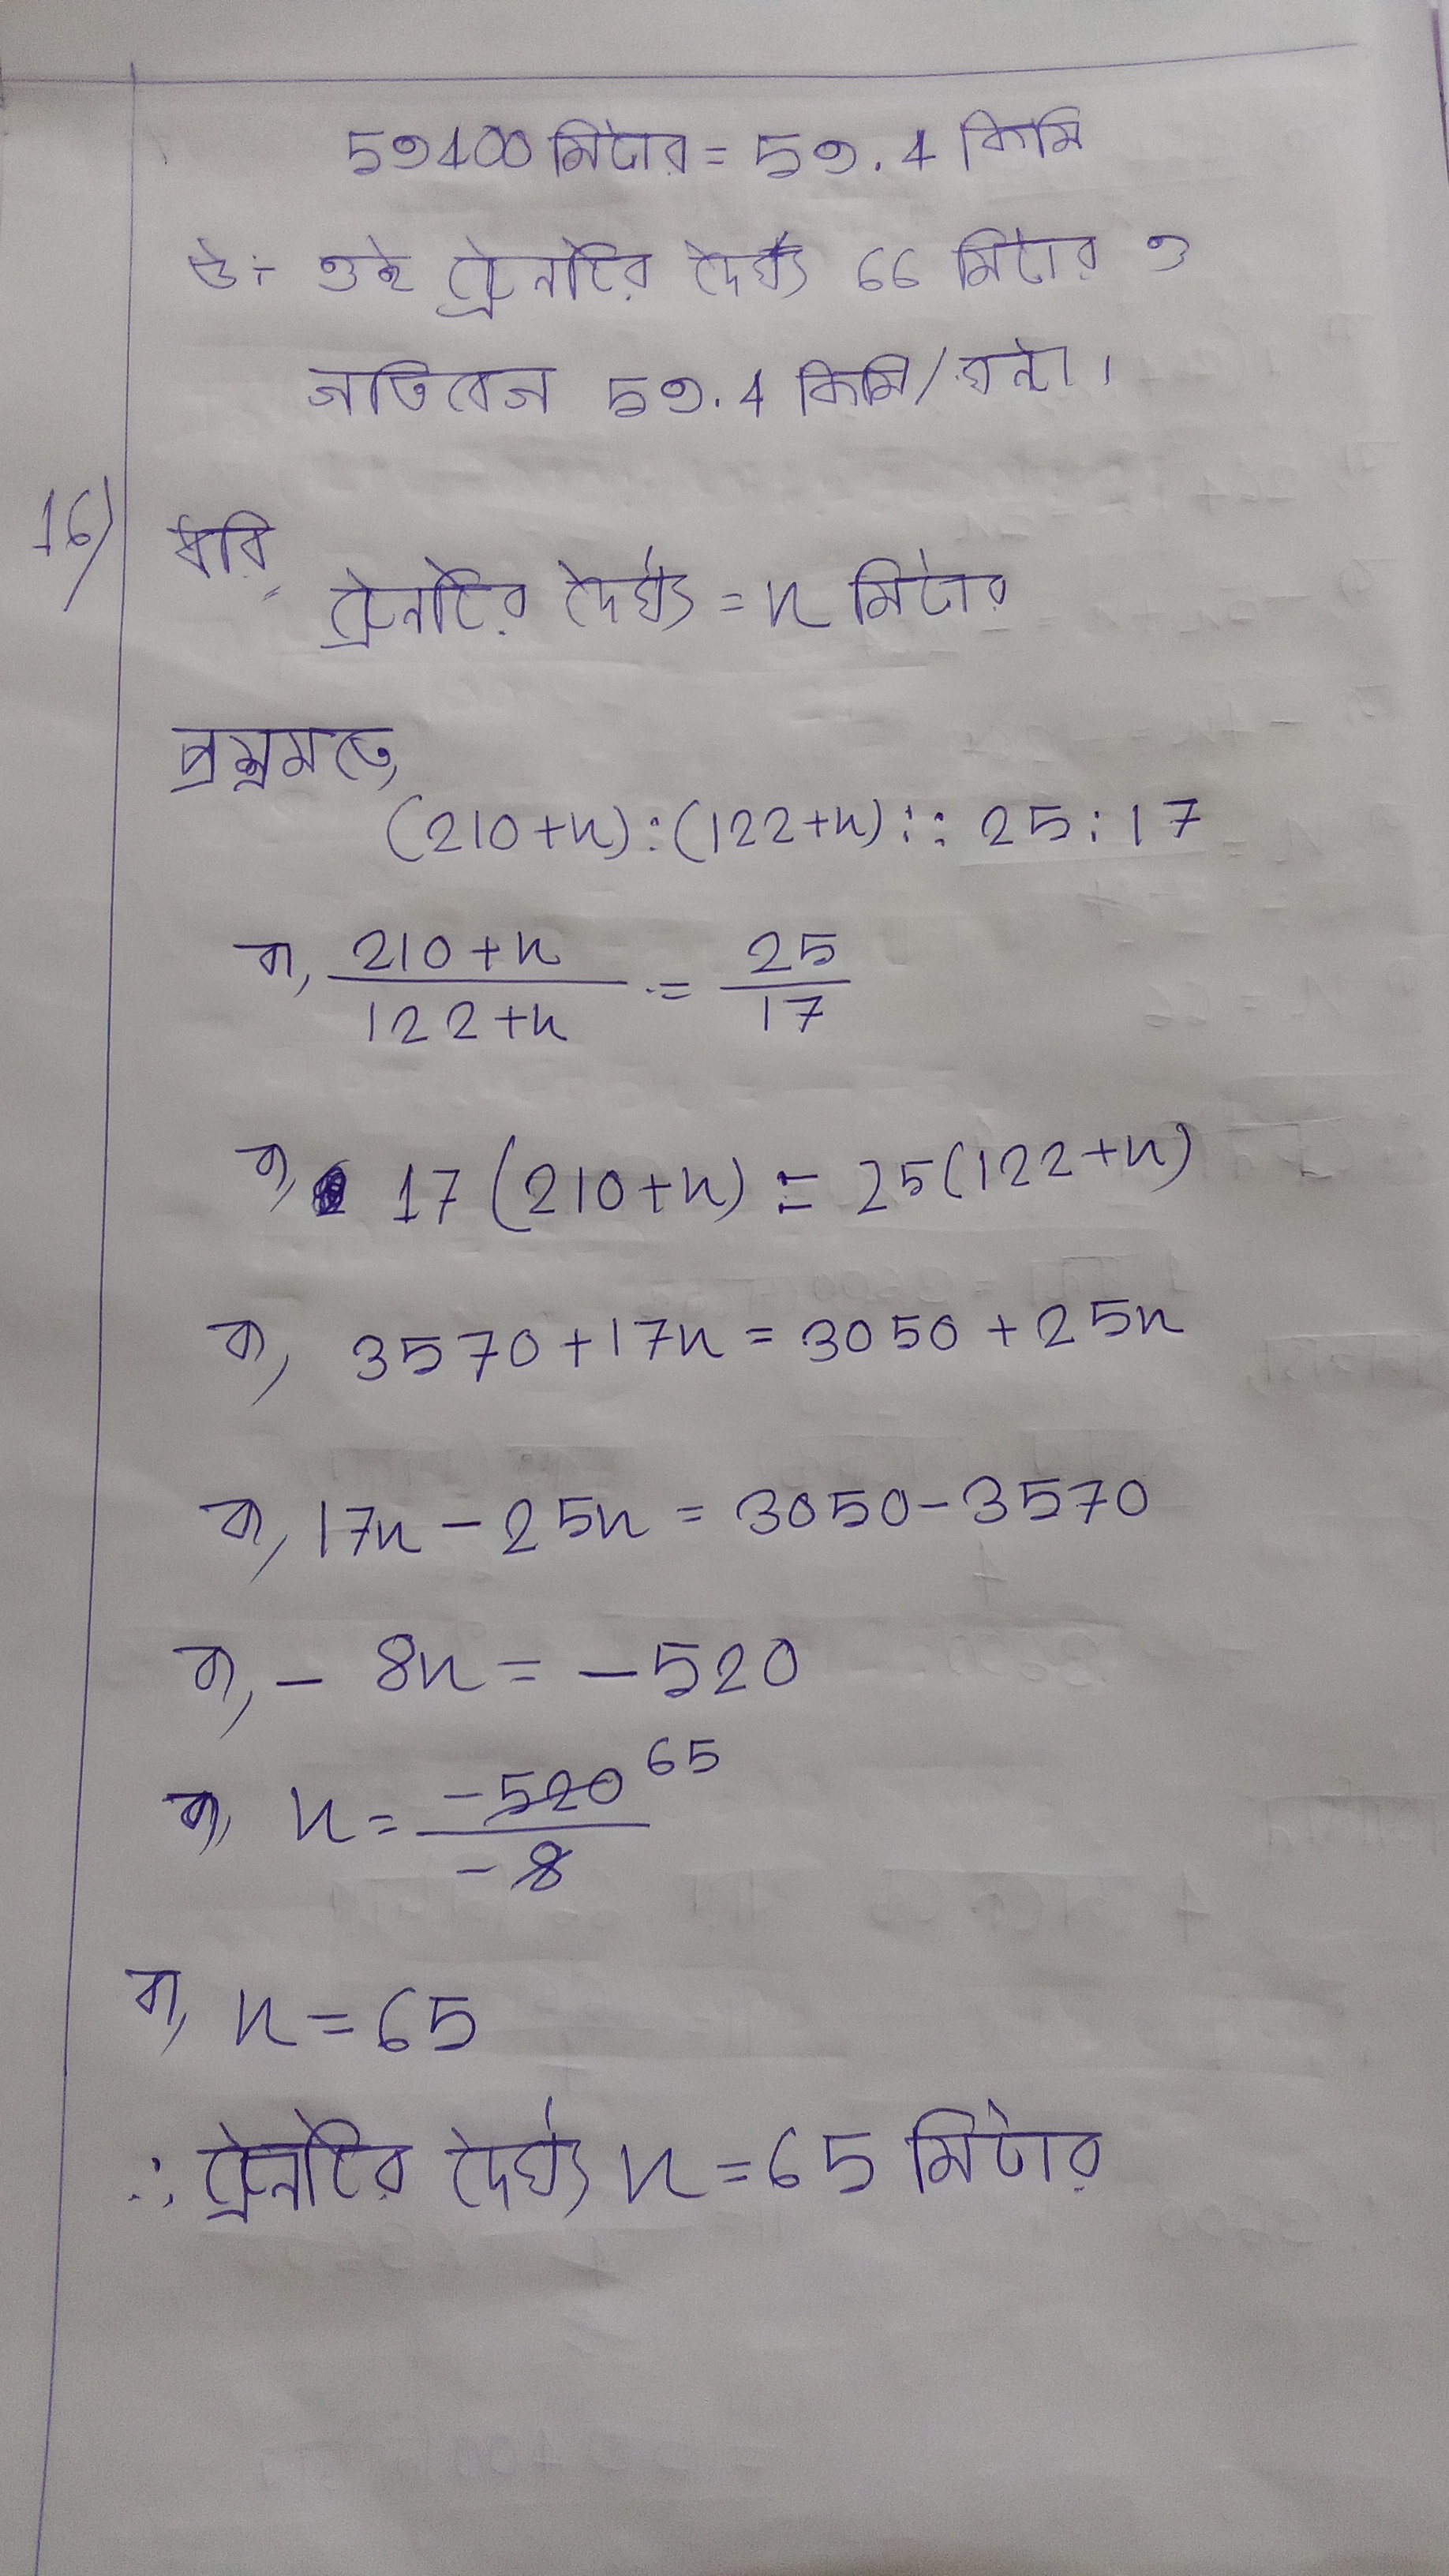 59400 মিটার = 59.4 কিমি
উঃ ওই ট্রেনটির দৈর্ঘ্য 66 মিটার ও
গতিবেগ 59.4 কিমি/ঘন্টা।
16) ধরি,
ট্রেনটির দৈর্ঘ্য = x মিটার
প্রশ্নমতে,
(210+x):(122+x)::25:17
বা, 210+x / 122+x = 25 / 17
বা, 17(210+x) = 25(122+x)
বা, 3570+17x = 3050+25x
বা, 17x – 25x = 3050 – 3570
বা, – 8x = – 520
বা, x = –520 / –8 65
বা, x = 65
∴ ট্রেনটির দৈর্ঘ্য x = 65 মিটার